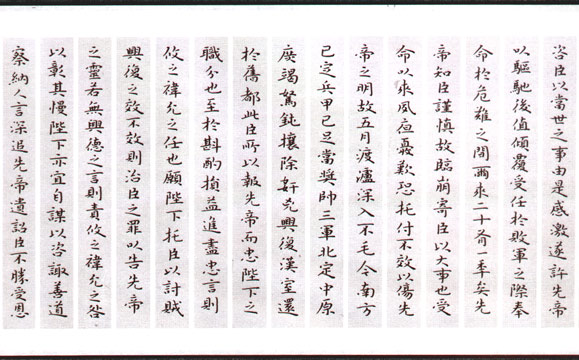 咨臣以當世之事由是感激遂許先帝
以驅馳後值傾覆受任於敗軍之際奉
命於危難之間爾來二十有一年矣先
帝知臣謹慎故臨崩寄臣以大事也受
命以來夙夜憂歎恐托付不效以傷先
帝之明故五月渡瀘深入不毛今南方
已定兵甲已足當獎帥三軍北定中原
庶竭駑鈍攘除奸兇興復漢室還
於舊都此臣所以報先帝而忠陛下之
職分也至於斟酌損益進盡忠言則
攸之禕允之任也願陛下托臣以討賊
興復之效不效則治臣之罪以告先帝
之靈若無興德之言則責攸之禕允之咎
以彰其慢陛下亦宜自謀以咨諏善道
察納人言深追先帝遺詔臣不勝受恩